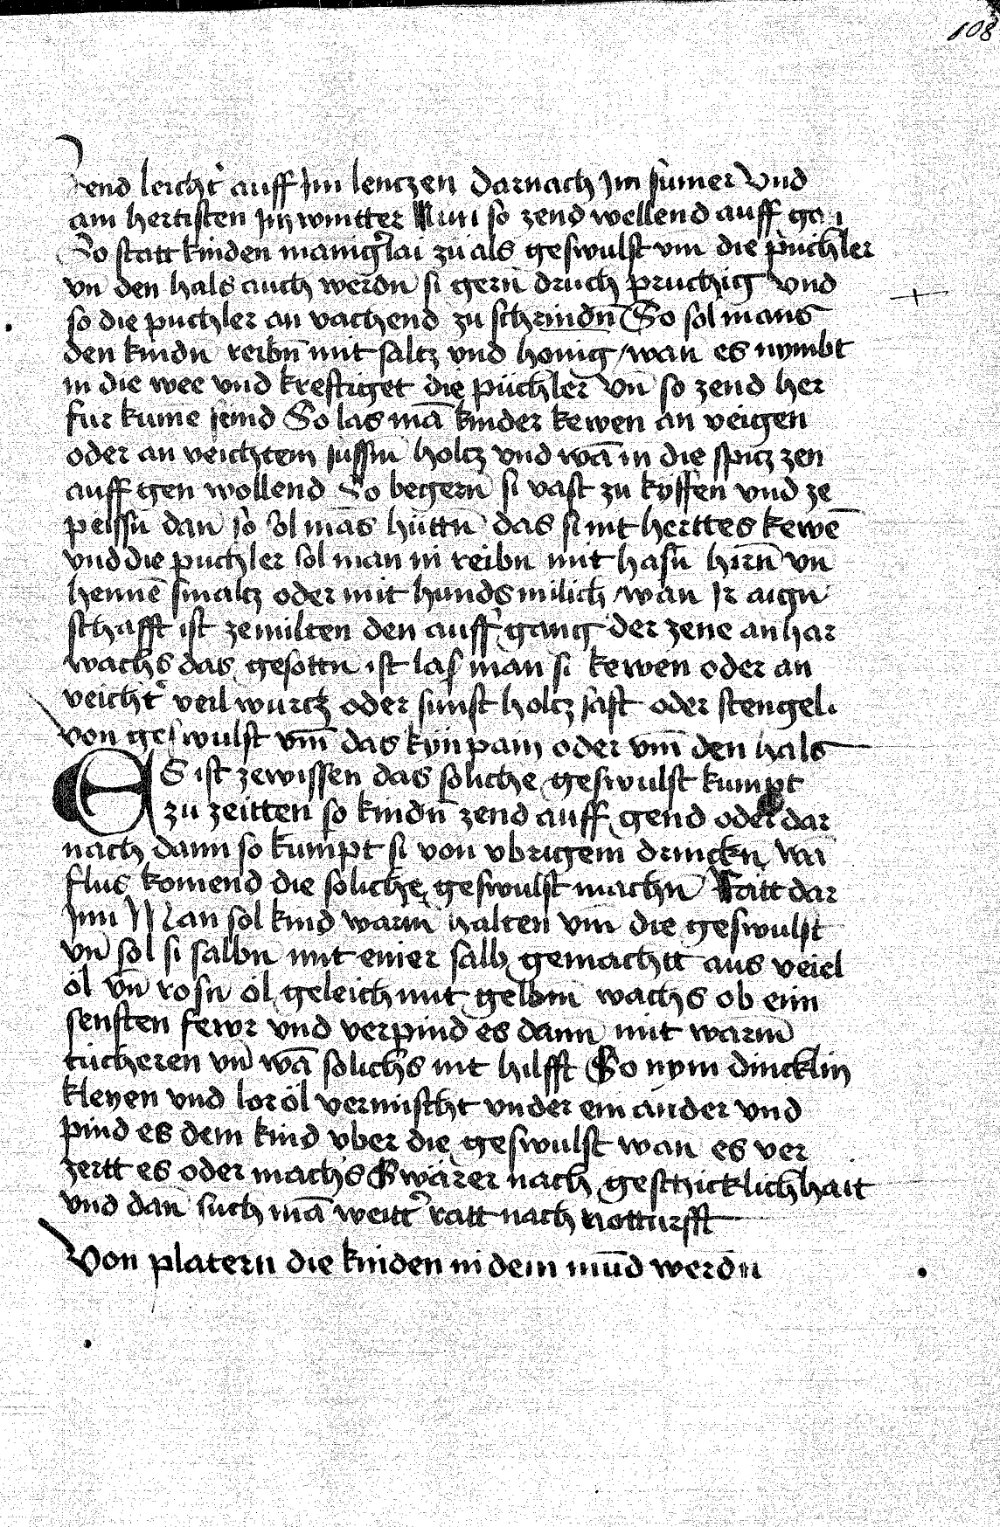 108
Zend leicht auff Jm lenczen darnach Jm sumer Vnd
am hertisten Jm wintter Nun so zend wellend auff gan
So statt kinden manigerlai zu als geswulst vm die püchler
vn̄ den hals auch werdn̄ si gern̄ druch pruchig vnd
so die puchler an vachend zu schrindn̄ So sol mans
den kindn reibn̄ mit saltz vnd honig / wan es nymbt
in die wee vnd kreftiget die püchler vn̄ so zend her
fur kume sind So las mā kinder kewen an veigen
oder an veichtem süssm̄ holtz vnd wā in die spicz zen
auff gen wollend So begern̄ si vast zu kyffen vnd ze
peissn̄ dan̄ so sol mās hüttn̄ das si nit herttes kewē
vnd die puchler sol man in reibn mit hasn̄ hirn̄ vn̄
hennē smaltz oder mit hunds milich / wan̄ Jr aign
schafft ist zemilten den auff gang der zene an har
wachs das gesottn ist las man si kewen oder an
veicht veil wurcz oder sunst holtz saft oder stengel.
von geswulst vm̄ das kyn pain oder vm̄ den hals
ES ist zewissen das soliche geswulst kumpt
zu zeitten so kindn̄ zend auff gend oder dar
nach dann so kumpt si von vbrigem drinckn wā
flus komend die soliche geswulst machn̄ Ratt dar
Jnn Man sol kind warm halten vm̄ die geswulst
vn̄ sol si salbn mit einer salb gemachtt aus veiel
öl vn̄ rosn öl geleich mit gelbm wachs ob eim
senften fewr vnd verpind es dann mit warm̄
tücheren vn̄ wā solichs nit hilfft So nym dincklin
kleyen vnd lor öl vermischt vnder ein ander vnd
pind es dem kind vber die geswulst wan̄ es ver
zertt es oder machs Gwärer nach geschicklichhait
vnd dan̄ such mā weitt ratt nach notturfft
Von platern die kinden in dem mu͞d werdn̄